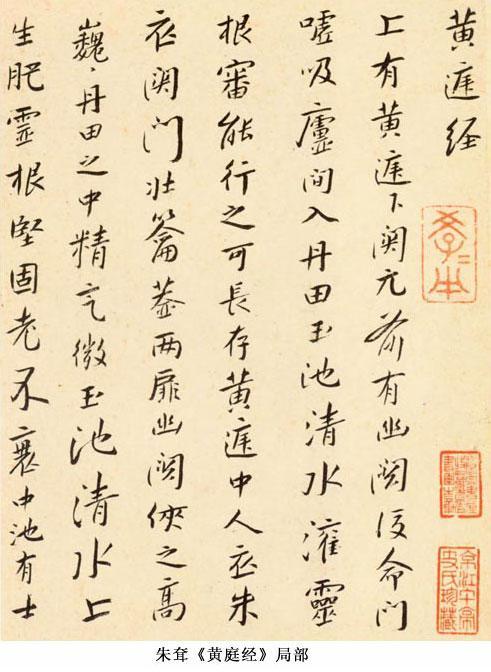 黄庭经
上有黄庭下関元前有幽関後命門
嘘吸廬間入丹田玉池清水灌靈
根審能行之可長存黄庭中人衣朱
衣関門壮籥盖兩扉幽関俠之高
巍〻丹田之中精氣微玉池清水上
生肥靈根堅固老不衰中池有士
朱耷《黄庭经》局部